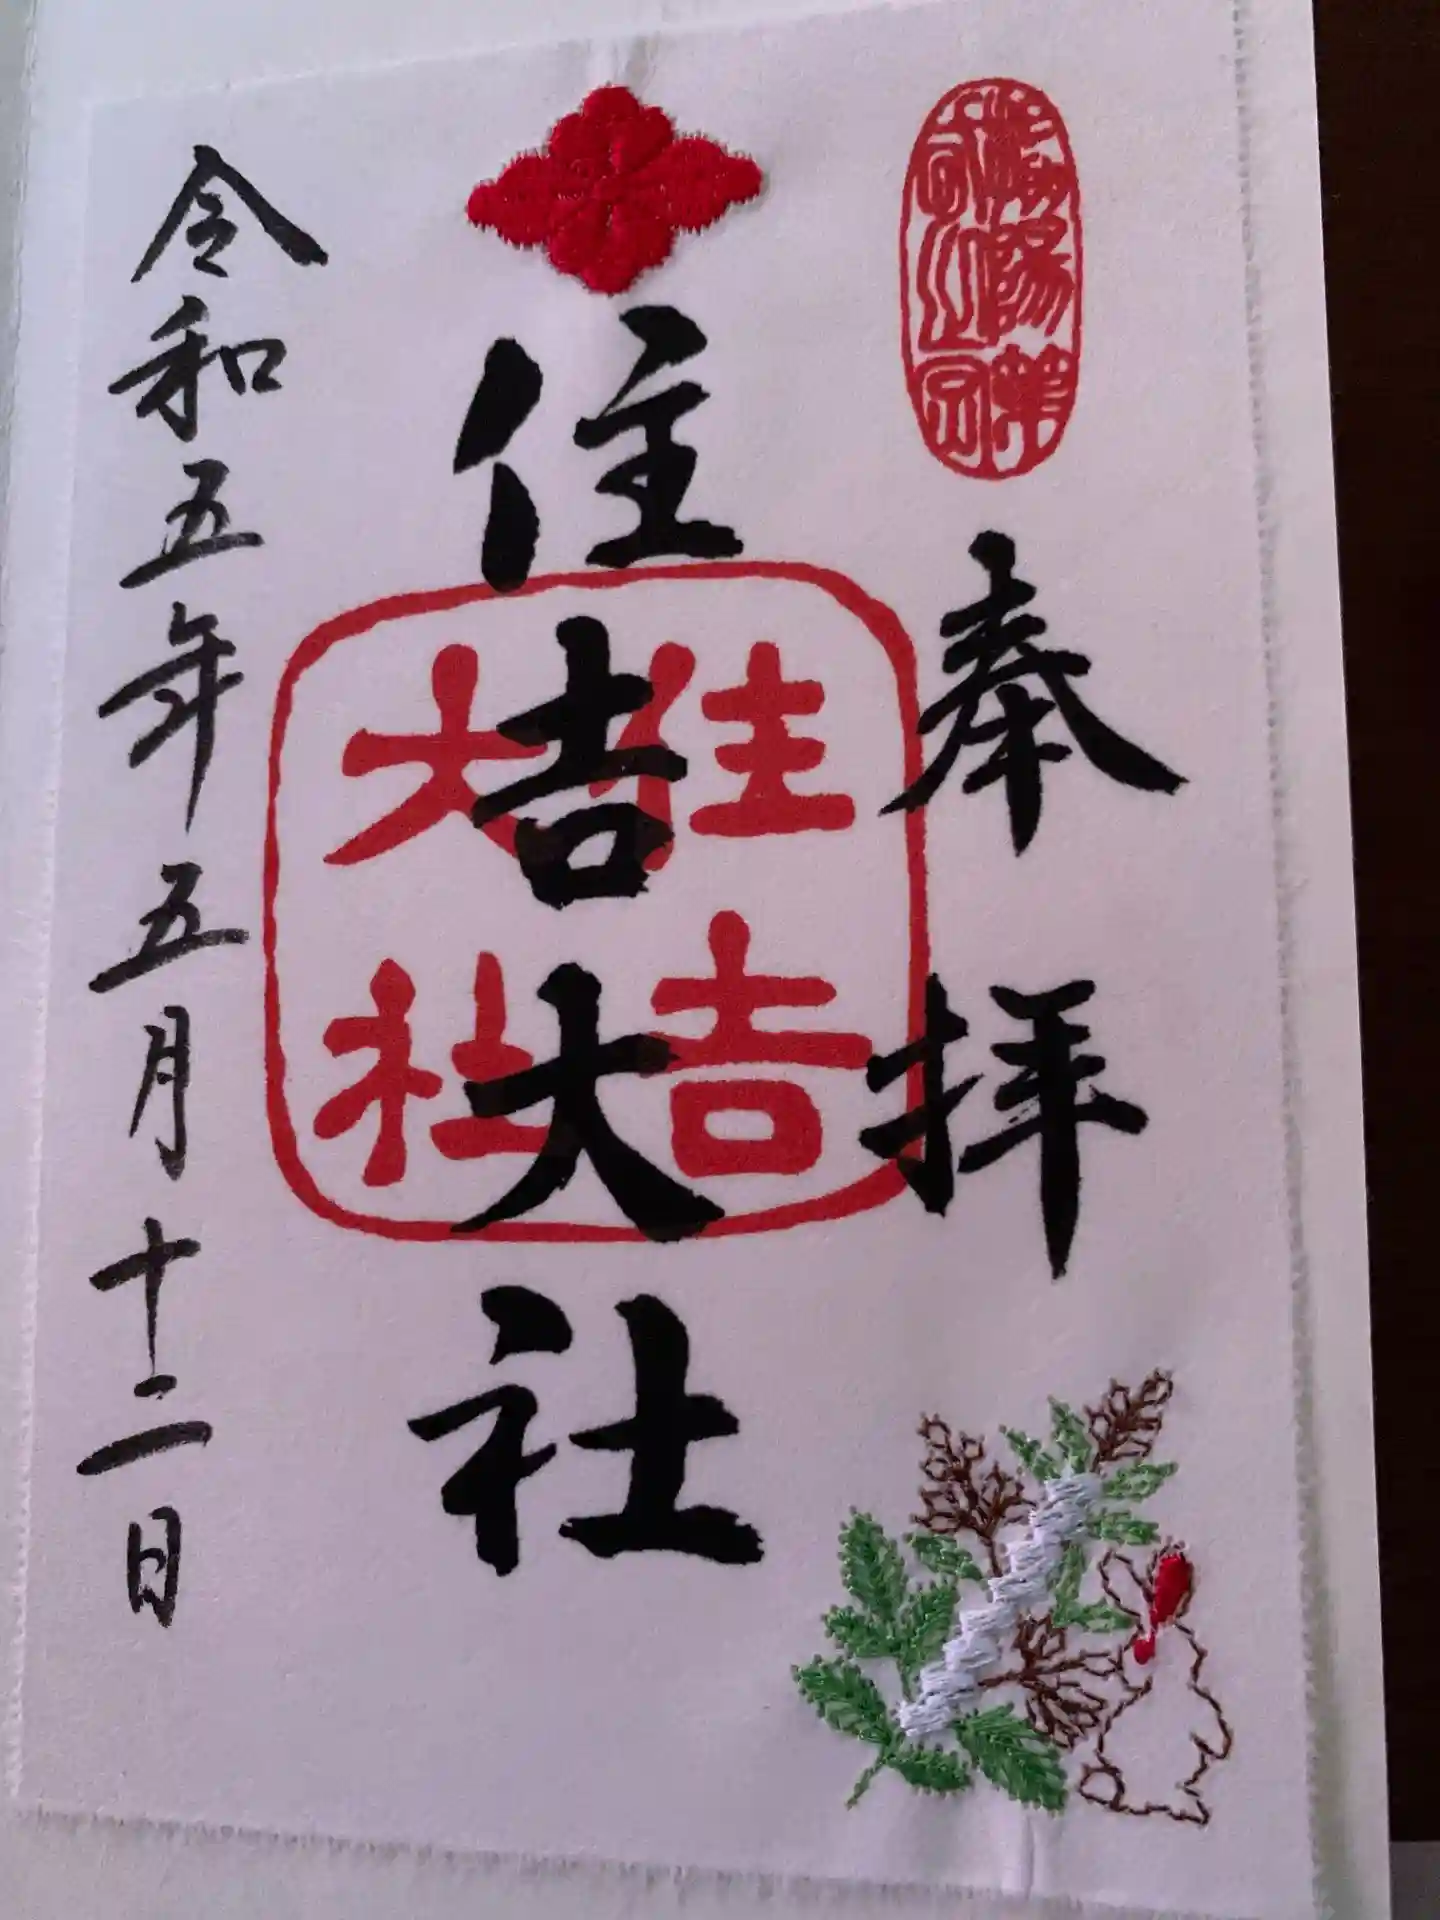 奉拝
住吉大社
住吉
大社
令和五年五月十二日